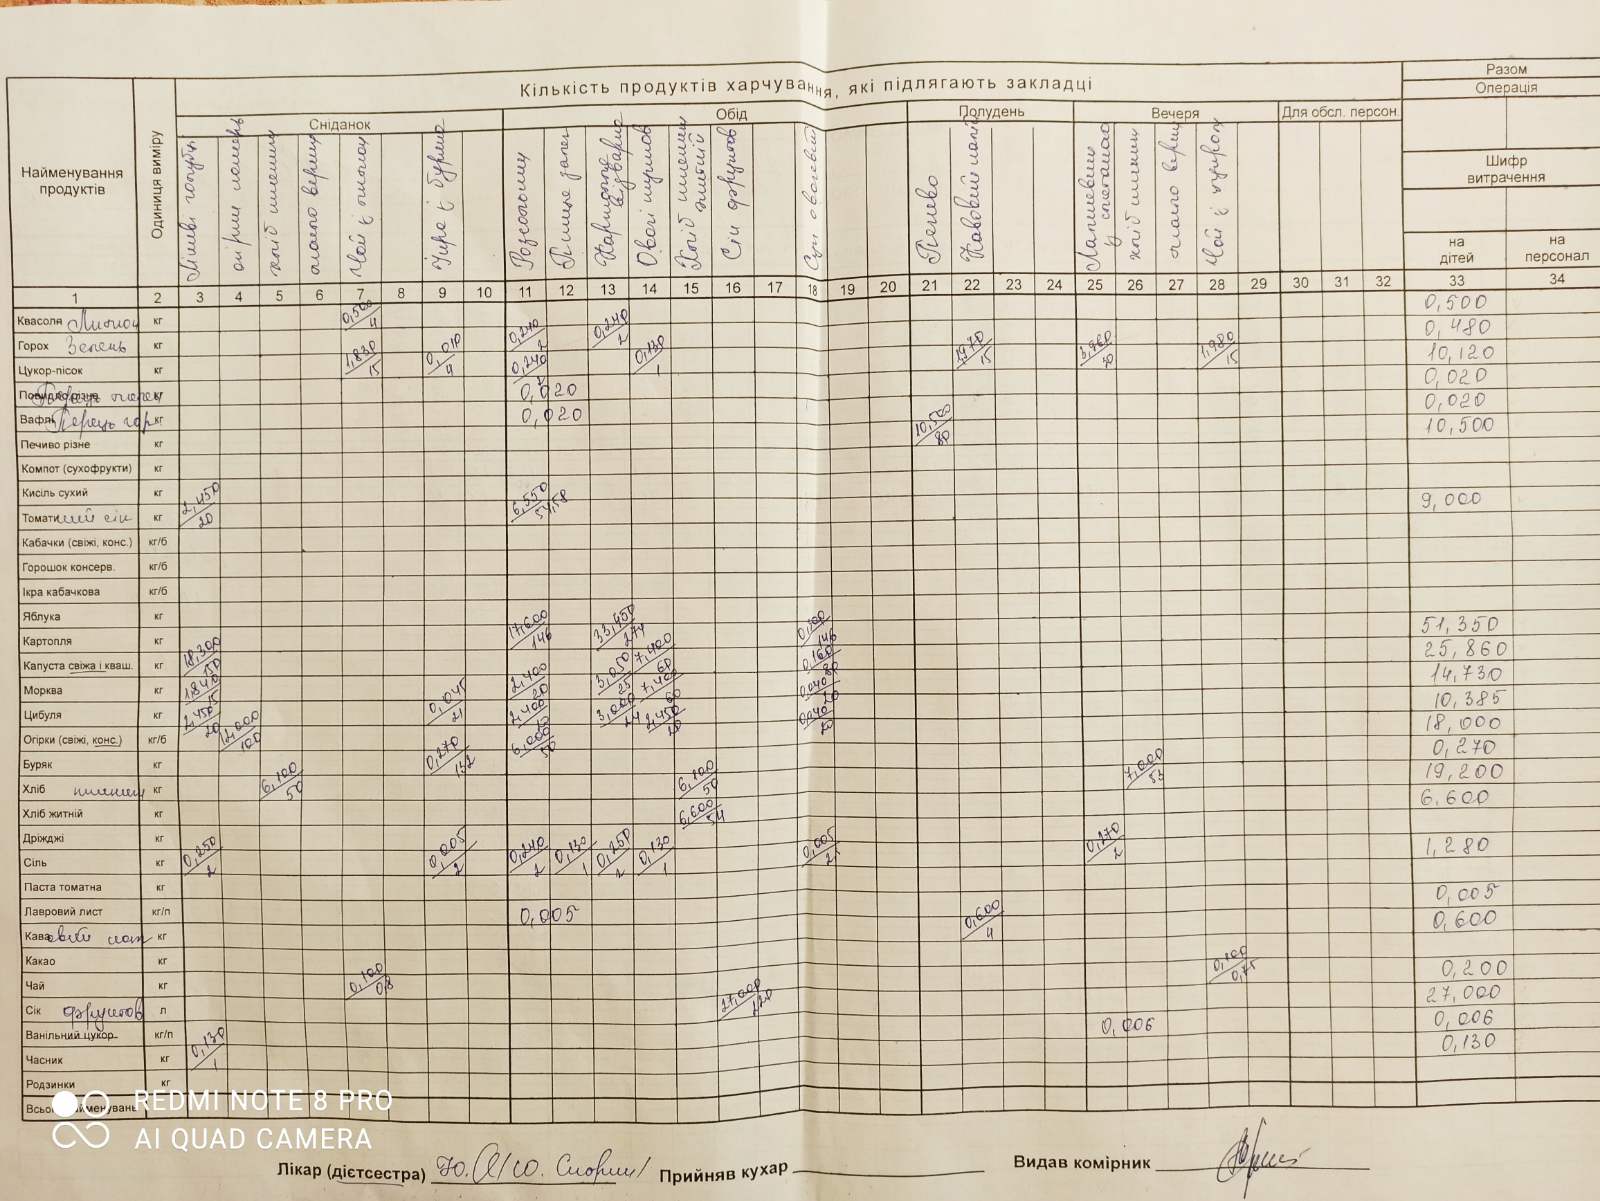 Кількість продуктів харчування, які підлягають закладці
Разом
Операція
Шифр витрачення
на дітей
на персонал
Найменування продуктів
Одиниця виміру
Сніданок
Обід
Полудень
Вечеря
Для обсл. персон.
хліб
масло
Чай з лимоном
Ікра з буряка
Розсольник
Картопля відварна
Сік фруктов
Суп овочевий
Печиво
Кавовий напій
1 2 3 4 5 6 7 8 9 10 11 12 13 14 15 16 17 18 19 20 21 22 23 24 25 26 27 28 29 30 31 32 33 34
Квасоля Лимон кг 0,500/4 0,500
Горох Зелень кг 0,240/2 0,240/2 0,480
Цукор-пісок кг 1,830/15 0,010/4 0,240/2 0,130/1 1,970/15 3,960/30 1,980/15 10,120
Повидло різне кг 0,020 0,020
Вафлі Перець гор кг 0,020 0,020
Печиво різне кг 10,500/80 10,500
Компот (сухофрукти) кг
Кисіль сухий кг
Томатний сік кг 2,450/20 6,550/54,58 9,000
Кабачки (свіжі, конс.) кг/б
Горошок консерв. кг/б
Ікра кабачкова кг/б
Яблука кг
Картопля кг 17,600/146 33,450/274 0,300/146 51,350
Капуста свіжа і кваш. кг 18,300/150 7,400/60 0,160/80 25,860
Морква кг 1,840/15 2,400/20 3,050/25 7,400/60 0,040/20 14,730
Цибуля кг 2,450/20 0,045/21 2,400/20 3,000/24 2,450/20 0,040/20 10,385
Огірки (свіжі, конс.) кг/б 12,000/100 6,000/50 18,000
Буряк кг 0,270/132 0,270
Хліб пшенич кг 6,100/50 6,100/50 7,000/53 19,200
Хліб житній кг 6,600/54 6.600
Дріжджі кг
Сіль кг 0,250/2 0,005/2 0,240/2 0,130/1 0,250/2 0,130/1 0,005/2 0,270/2 1,280
Паста томатна кг
Лавровий лист кг/п 0,005 0,005
Кававий нап кг 0,600/4 0,600
Какао кг
Чай кг 0,100/0,8 0,100/0,75 0,200
Сік фруктов л 27,000/120 27,000
Ванільний цукор кг/п 0,006 0,006
Часник кг 0,130/1 0,130
Родзинки кг
Всього найменувань
REDMI NOTE 8 PRO
AI QUAD CAMERA
Лікар (дієтсестра) Прийняв кухар Видав комірник